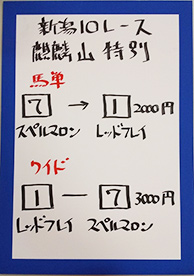 新潟10レース
麒麟山特別
馬単
7 → 1 2000円
スペルマロン レッドフレイ
ワイド
1 — 7 3000円
レッドフレイ スペルマロン